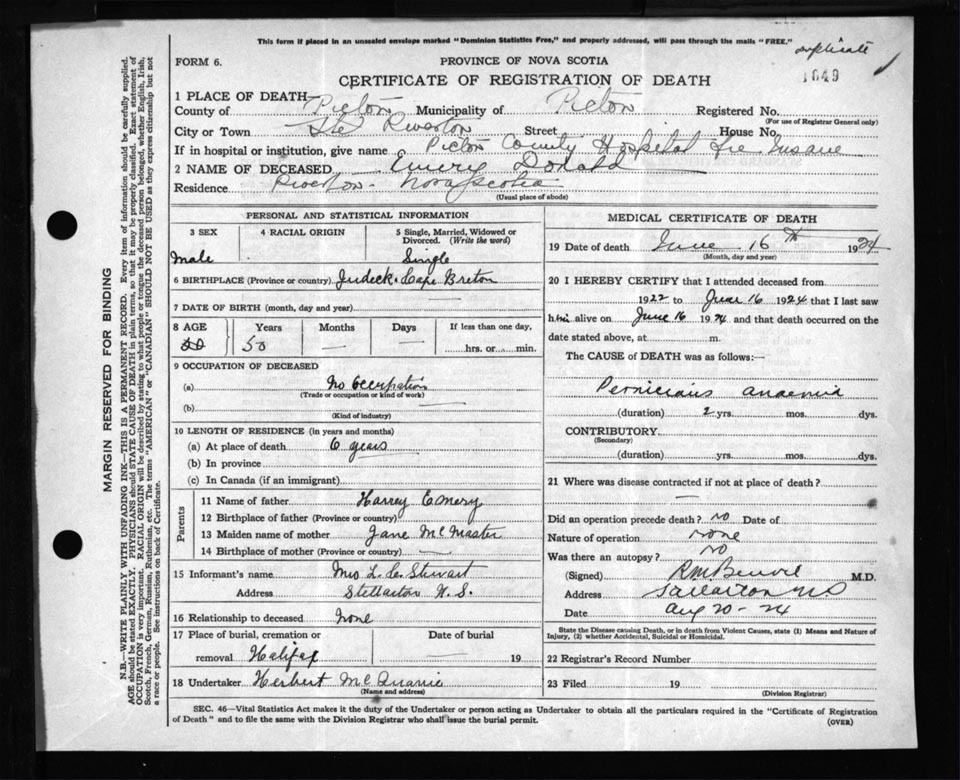 This form if placed in an unsealed envelope marked "Dominion Statistics Free," and properly addressed, will pass through the mails "FREE."
duplicate
FORM 6.
PROVINCE OF NOVA SCOTIA
1649
CERTIFICATE OF REGISTRATION OF DEATH
1 PLACE OF DEATH—
County of Pictou Municipality of Pictou Registered No.
(For use of Registrar General only)
City or Town Riverton Street House No.
If in hospital or institution, give name Pictou County Hospital for Insane
2 NAME OF DECEASED Emery Donald
Residence Riverton - Nova Scotia
(Usual place of abode)
PERSONAL AND STATISTICAL INFORMATION
3 SEX 4 RACIAL ORIGIN 5 Single, Married, Widowed or Divorced. (Write the word)
Male Single
6 BIRTHPLACE (Province or country) Cape Breton
7 DATE OF BIRTH (month, day and year)
8 AGE Years Months Days If less than one day,
50 50 — — hrs. or min.
9 OCCUPATION OF DECEASED
(a) No Occupation
(Trade or occupation or kind of work)
(b) —
(Kind of industry)
10 LENGTH OF RESIDENCE (in years and months)
(a) At place of death 6 years
(b) In province
(c) In Canada (if an immigrant)
Parents
11 Name of father Harvey Emery
12 Birthplace of father (Province or country) —
13 Maiden name of mother Jane McMaster
14 Birthplace of mother (Province or country) —
15 Informant's name Mrs L. C. Stewart
Address Stellarton N.S.
16 Relationship to deceased None
17 Place of burial, cremation or Date of burial
removal Halifax — 19
18 Undertaker Herbert McQuarrie
(Name and address)
MEDICAL CERTIFICATE OF DEATH
19 Date of death June 16th 1924
(Month, day and year)
20 I HEREBY CERTIFY that I attended deceased from
1922 to June 16 1924 that I last saw
him alive on June 16 1924 and that death occurred on the
date stated above, at m.
The CAUSE of DEATH was as follows:—
Pernicious anaemia
(duration) 2 yrs. mos. dys.
CONTRIBUTORY
(Secondary)
(duration) yrs. mos. dys.
21 Where was disease contracted if not at place of death?
—
Did an operation precede death? no Date of
Nature of operation none
Was there an autopsy? no
(Signed) R M Benvie M.D.
Address Stellarton NS
Date Aug 20 - 24
State the Disease causing Death, or in death from Violent Causes, state (1) Means and Nature of
Injury, (2) whether Accidental, Suicidal or Homicidal.
22 Registrar's Record Number
23 Filed 19
(Division Registrar)
SEC. 46—Vital Statistics Act makes it the duty of the Undertaker or person acting as Undertaker to obtain all the particulars required in the "Certificate of Registration
of Death" and to file the same with the Division Registrar who shall issue the burial permit.
(OVER)
MARGIN RESERVED FOR BINDING
N.B.—WRITE PLAINLY WITH UNFADING INK—THIS IS A PERMANENT RECORD. Every item of information should be carefully supplied.
AGE should be stated EXACTLY. PHYSICIANS should STATE CAUSE OF DEATH in plain terms, so that it may be properly classified. Exact statement of
OCCUPATION is very important. RACIAL ORIGIN will be described by stating to what people or tongue the deceased person belonged, whether English, Irish,
Scotch, French, German, Russian, Ruthenian, etc. The terms "AMERICAN" or "CANADIAN" SHOULD NOT BE USED as they express citizenship but not
a race or people. See instructions on back of Certificate.